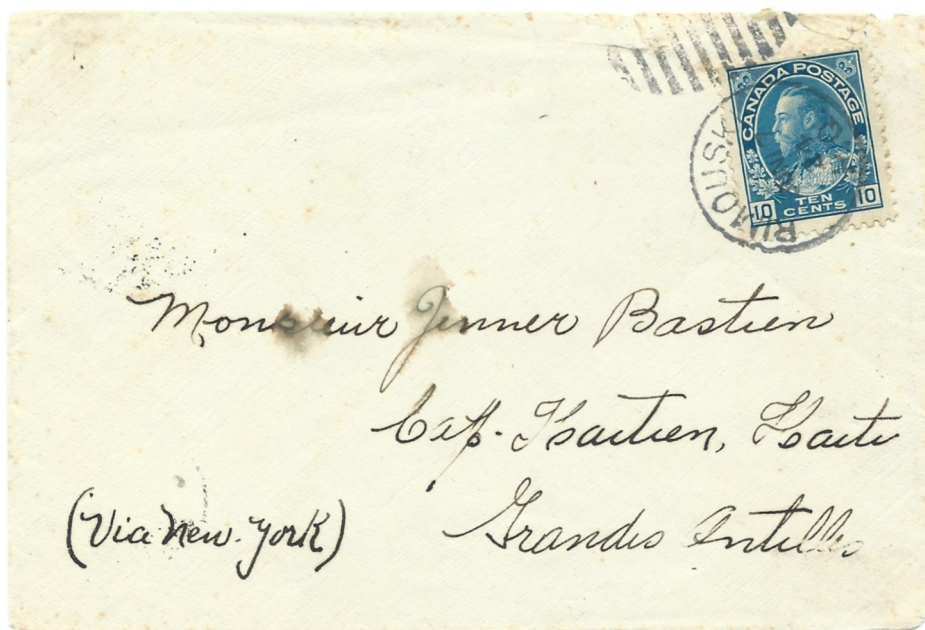 CANADA POSTAGE
10 TEN CENTS 10
RIMOUSKI
Monsieur Jenner Bastien
Cap-Haitien, Haiti
Grandes Antilles
(Via New-York)